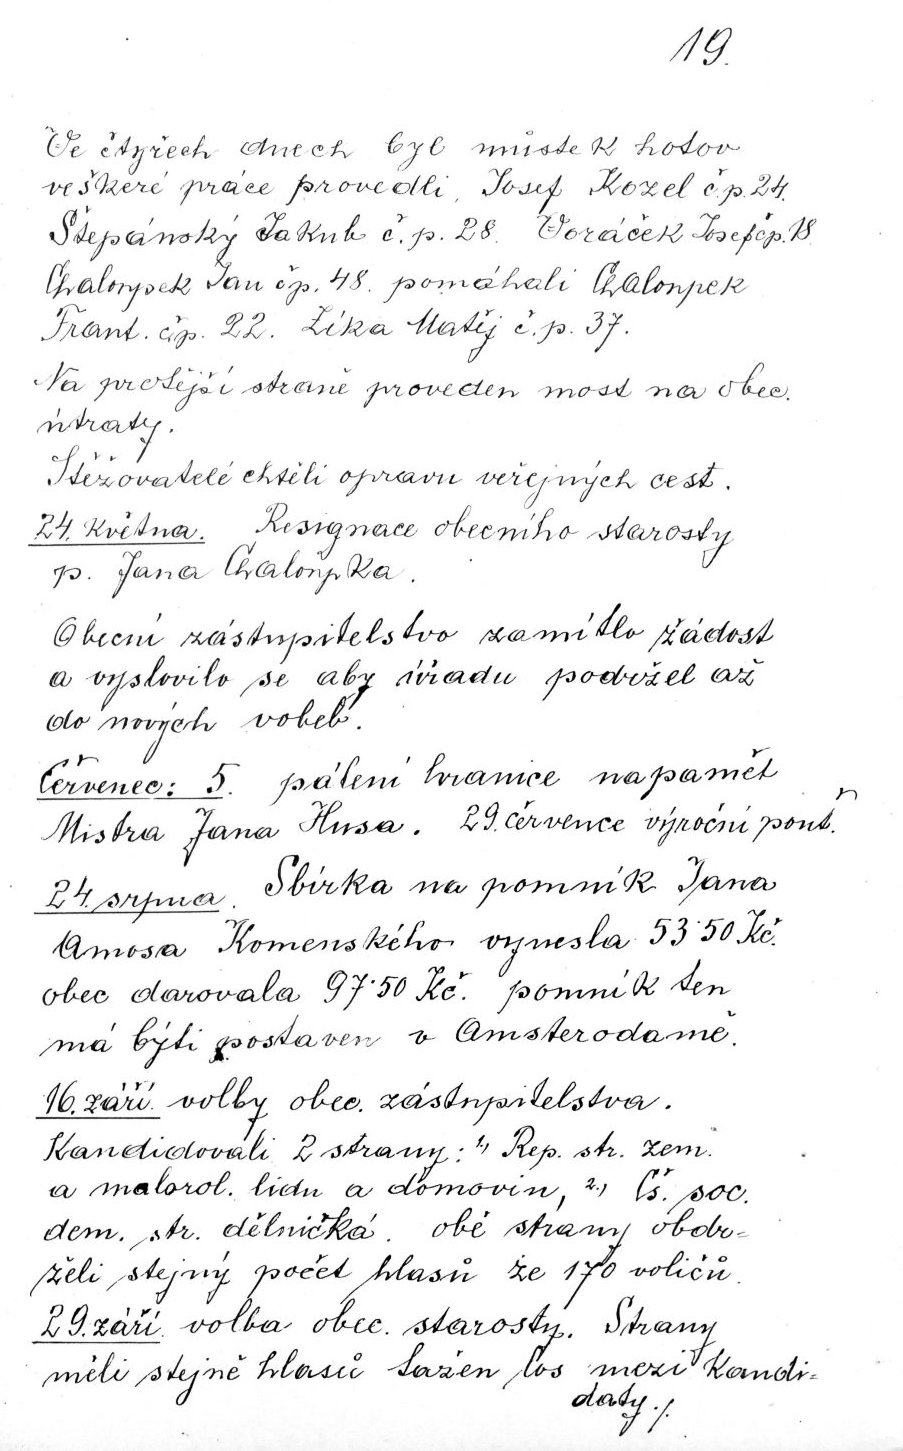 19.
Ve čtyřech dnech byl můstek hotov
veškeré práce provedli, Josef Kozel čp. 24.
Štepánský Jakub č. p. 28. Voráček Josef čp. 18
Chaloupek Jan čp. 48. pomáhali Chaloupek
Frant. čp. 22. Zíka Matěj č. p. 37.
Na protější straně proveden most na obec.
útraty.
Stěžovatelé chtěli opravu veřejných cest.
24. května. Resignace obecního starosty
p. Jana Chaloupka.
Obecní zástupitelstvo zamítlo žádost
a vyslovilo se aby úřadu podržel až
do nových voleb.
Červenec: 5. pálení hranice na paměť
Mistra Jana Husa. 29. července výroční pouť.
24. srpna. Sbírka na pomník Jana
Amosa Komenského vynesla 53·50 Kč.
obec darovala 97·50 Kč. pomník ten
má býti postaven v Amsterodamě.
16. září. volby obec. zástupitelstva.
Kandidovali 2 strany: 1.) Rep. str. zem.
a malorol. lidu a domovin, 2.) Čs. soc.
dem. str. dělnická. obě strany obdr=
želi stejný počet hlasů ze 170 voličů.
29. září. volba obec. starosty. Strany
měli stejně hlasů tažen los mezi kandi=
daty ./.